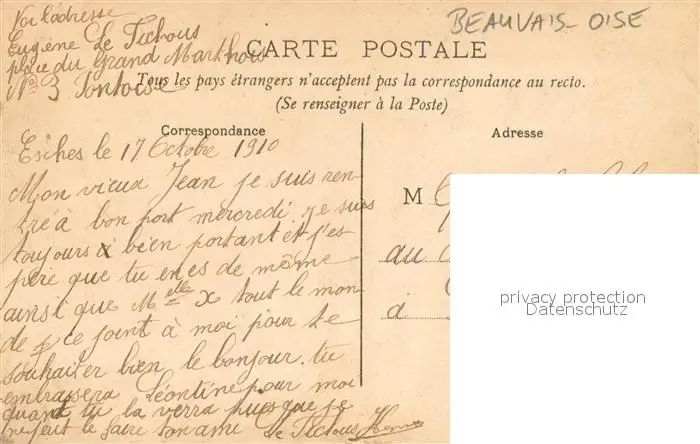 Voi l'adresse
Eugène Le Tichous
place du Grand Marthois
N° 3 Pontoise
BEAUVAIS - OISE
CARTE POSTALE
Tous les pays étrangers n'acceptent pas la correspondance au recto.
(Se renseigner à la Poste)
Correspondance
Adresse
Esches le 17 Octobre 1910
Mon vieux Jean je suis ren-
tré à bon port mercredi, je suis
toujours bien portant et j'es-
père que tu en es de même
ainsi que Melle X tout le mon
de ce joint à moi pour te
souhaiter bien le bonjour. tu
embrassera Léontine pour moi
quand tu la verra puisque je
ne peut le faire ton ami Le Tichous
M
au
à
privacy protection
Datenschutz